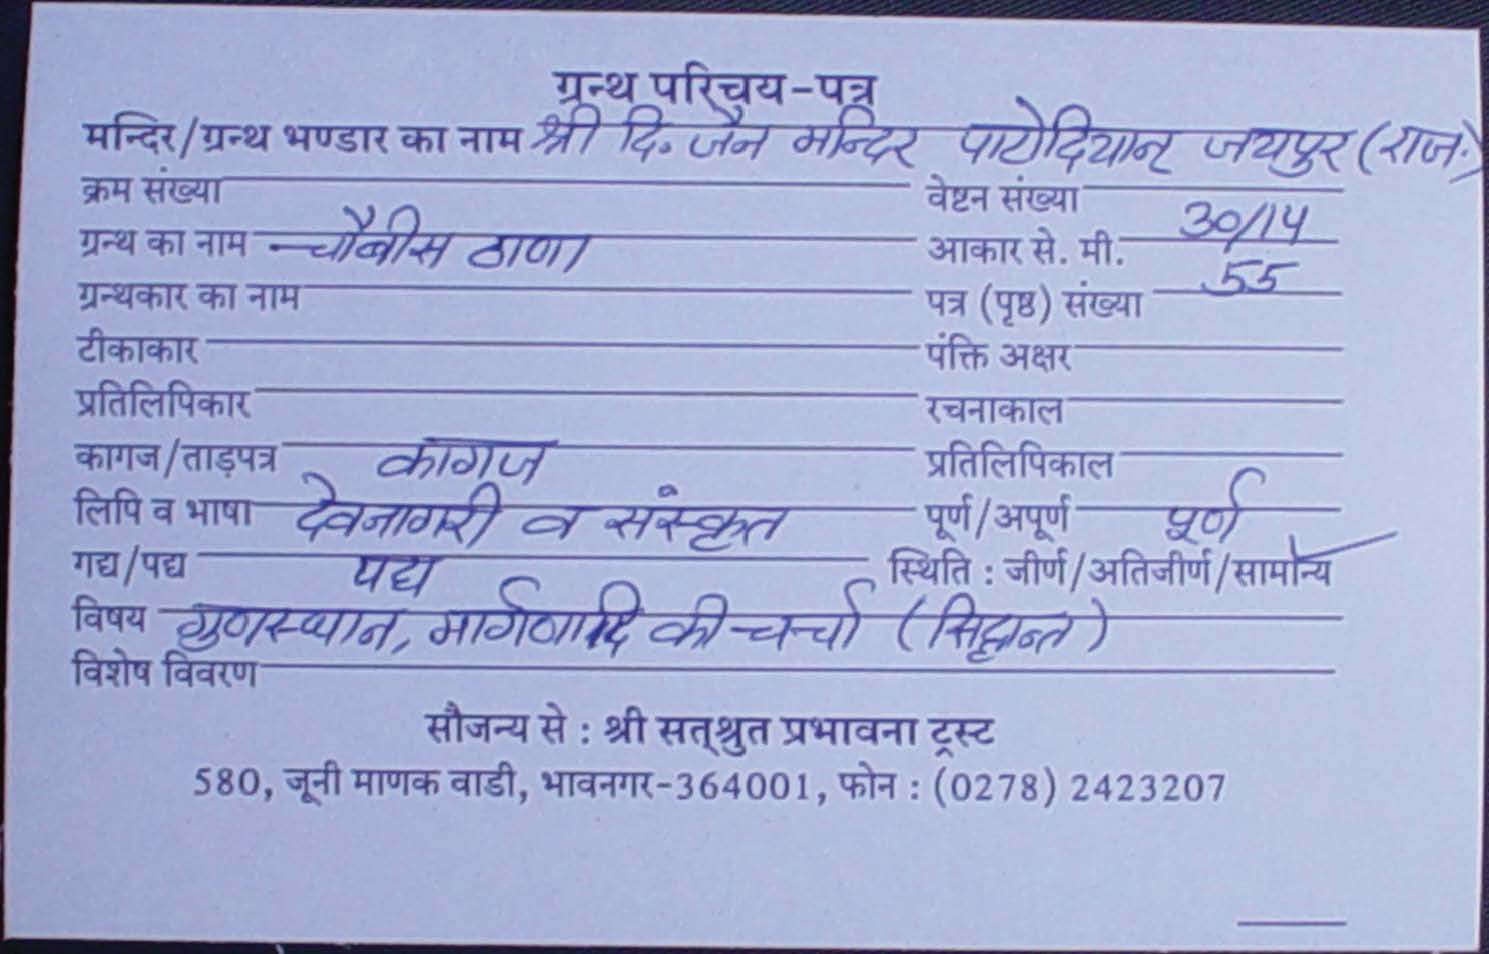 ग्रन्थ परिचय-पत्र
मन्दिर/ग्रन्थ भण्डार का नाम श्री दि. जैन मन्दिर पाटोदियान जयपुर (राज.)
क्रम संख्या वेष्टन संख्या
ग्रन्थ का नाम चौबीस ठाणा आकार से. मी. 30/14
ग्रन्थकार का नाम पत्र (पृष्ठ) संख्या 55
टीकाकार पंक्ति अक्षर
प्रतिलिपिकार रचनाकाल
कागज/ताड़पत्र कागज प्रतिलिपिकाल
लिपि व भाषा देवनागरी व संस्कृत पूर्ण/अपूर्ण पूर्ण
गद्य/पद्य पद्य स्थिति : जीर्ण/अतिजीर्ण/सामान्य
विषय गुणस्थान, मार्गणादि की चर्चा (सिद्धान्त)
विशेष विवरण
सौजन्य से : श्री सत्श्रुत प्रभावना ट्रस्ट
580, जूनी माणक वाडी, भावनगर-364001, फोन : (0278) 2423207